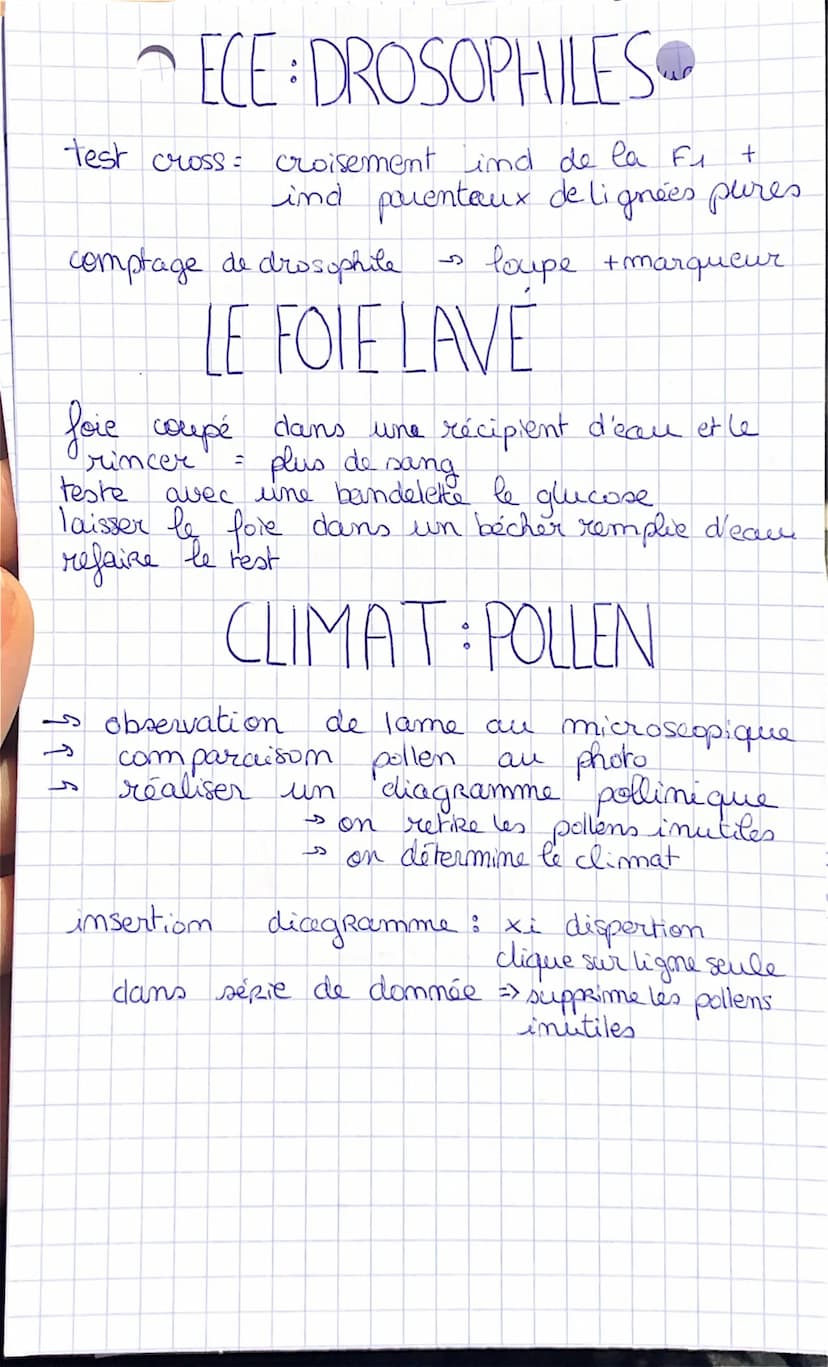 ECE : DROSOPHILES
test cross = croisement ind de la F1 +
ind parentaux de lignées pures
comptage de drosophile → loupe + marqueur
LE FOIE LAVÉ
foie coupé dans une récipient d'eau et le
rincer = plus de sang
teste avec une bandelette le glucose
laisser le foie dans un bécher remplie d'eau
refaire le test
CLIMAT : POLLEN
→ observation de lame au microscopique
→ comparaison pollen au photo
→ réaliser un diagramme pollinique
→ on retire les pollens inutiles
→ on détermine le climat
insertion diagramme : xi dispertion
clique sur ligne seule
dans série de donnée => supprime les pollens
inutiles